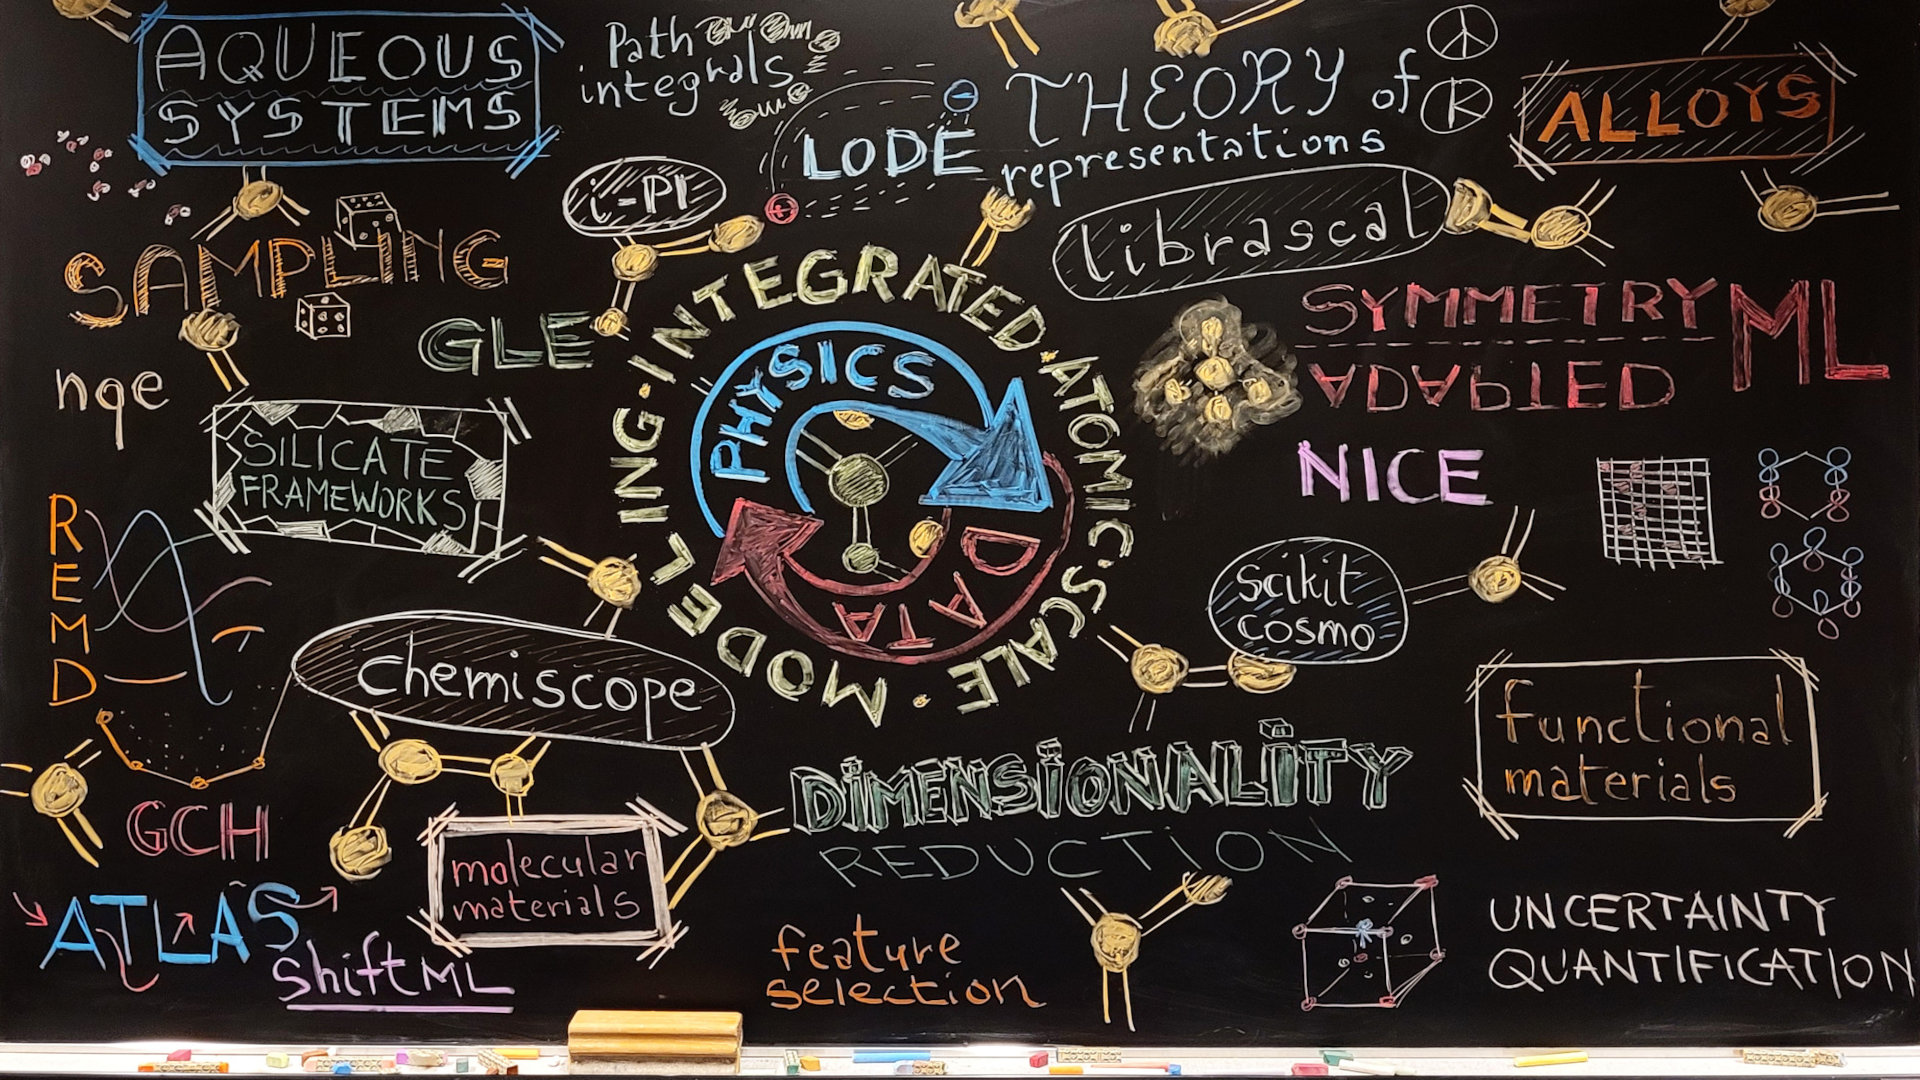 AQUEOUS
SYSTEMS
Path
integrals
LODE
THEORY of
representations
K
ALLOYS
i-PI
librascal
SAMPLING
GLE
nqe
SYMMETRY
ADAPTED
ML
NICE
·INTEGRATED·ATOMIC·SCALE·MODELING
PHYSICS
DATA
SILICATE
FRAMEWORKS
REMD
chemiscope
scikit
cosmo
functional
materials
DIMENSIONALITY
REDUCTION
GCH
molecular
materials
ATLAS
shiftML
feature
selection
UNCERTAINTY
QUANTIFICATION